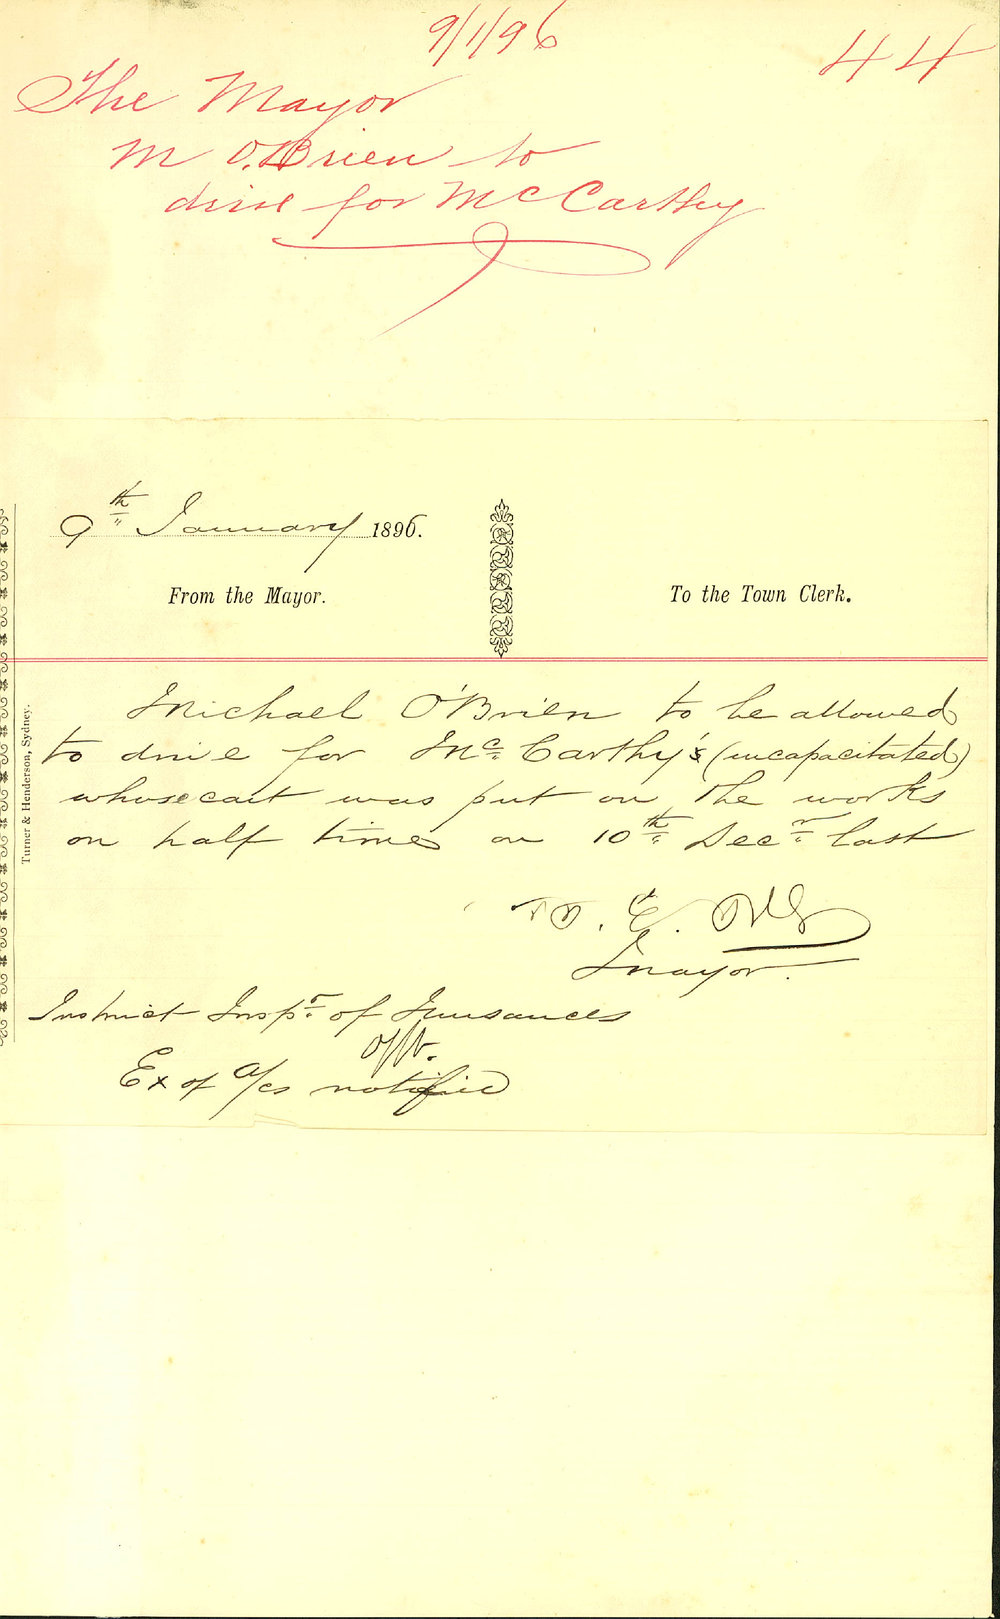 9/1/96
44
The Mayor
M O'Brien to
drive for McCarthy
9th January 1896.
From the Mayor.
To the Town Clerk.
Michael O'Brien to be allowed
to drive for McCarthy's (incapacitated)
whose cart was put on the works
on half time on 10th Decr last
Mayor.
Instruct Inspr of Nuisances
Ex of a/cs notified
Turner & Henderson, Sydney.